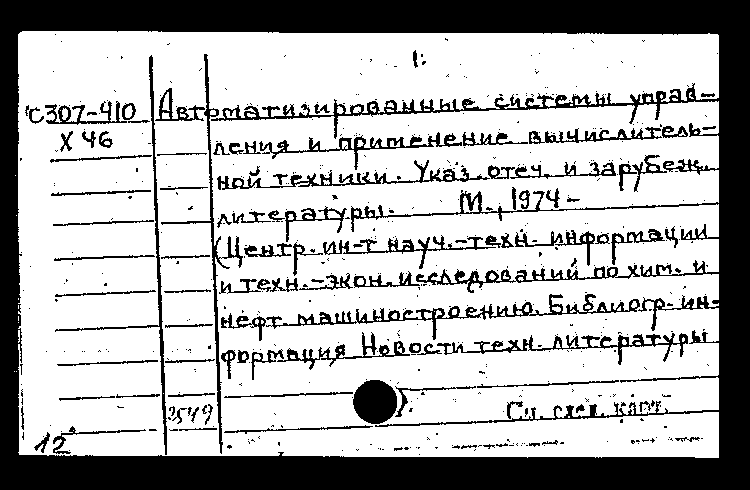 1:
С307-410 Автоматизированные системы управ-
Х 46 ления и применение вычислитель-
ной техники. Указ. отеч. и зарубеж.
литературы. М., 1974-
(Центр. ин-т науч.-техн. информации
и техн.-экон. исследований по хим. и
нефт. машиностроению. Библиогр. ин-
формация Новости техн. литературы
).
2549 См. след. карт.
12